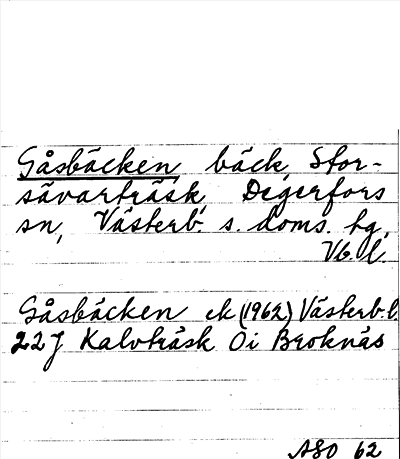 Gåsbäcken, bäck, Stor-
sävarträsk, Degerfors
sn, Västerb. s. doms. tg,
Vb. l.
Gåsbäcken ek (1962) Västerb.l.
22J Kalvträsk Öi Broknäs
ASO 62